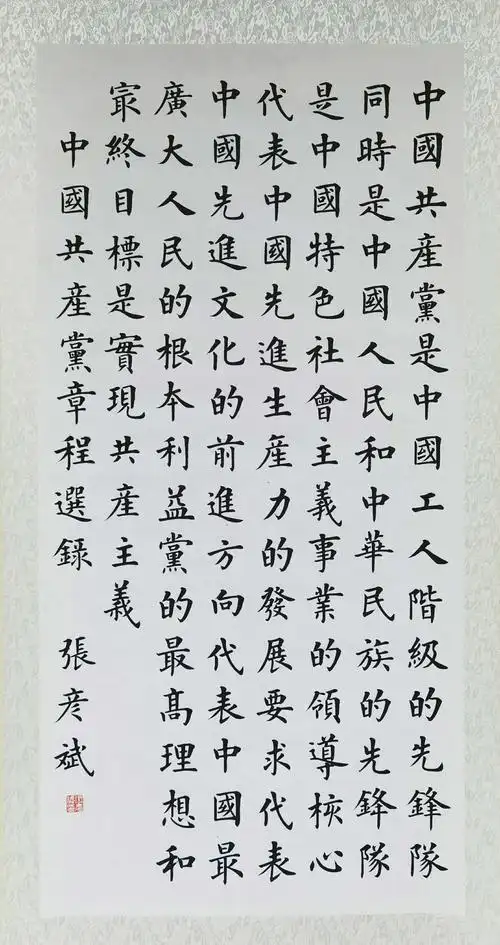 中國共産黨是中國工人階級的先鋒隊
同時是中國人民和中華民族的先鋒隊
是中國特色社會主義事業的領導核心
代表中國先進生産力的發展要求代表
中國先進文化的前進方向代表中國最
廣大人民的根本利益黨的最高理想和
㝡終目標是實現共産主義
中國共産黨章程選録 張彦斌